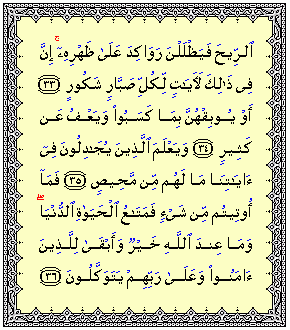 ٱلرِّيحَ فَيَظْلَلْنَ رَوَاكِدَ عَلَىٰ ظَهْرِهِۦٓ ۚ إِنَّ
فِى ذَٰلِكَ لَـَٔايَـٰتٍ لِّكُلِّ صَبَّارٍ شَكُورٍ ﴿٣٣﴾
أَوْ يُوبِقْهُنَّ بِمَا كَسَبُوا۟ وَيَعْفُ عَن
كَثِيرٍ ﴿٣٤﴾ وَيَعْلَمَ ٱلَّذِينَ يُجَـٰدِلُونَ فِىٓ
ءَايَـٰتِنَا مَا لَهُم مِّن مَّحِيصٍ ﴿٣٥﴾ فَمَآ
أُوتِيتُم مِّن شَىْءٍ فَمَتَـٰعُ ٱلْحَيَوٰةِ ٱلدُّنْيَا ۖ
وَمَا عِندَ ٱللَّهِ خَيْرٌ وَأَبْقَىٰ لِلَّذِينَ
ءَامَنُوا۟ وَعَلَىٰ رَبِّهِمْ يَتَوَكَّلُونَ ﴿٣٦﴾